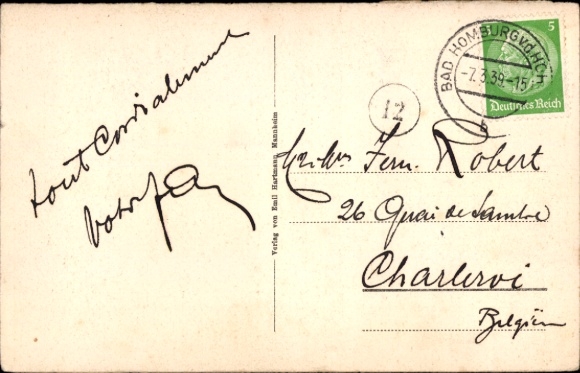 tout Cordialement
5
BAD HOMBURG v.d.H.
-7.3.39.-15
b
Deutsches Reich
12
Verlag von Emil Hartmann, Mannheim
Fern. Robert
26 Quai de Sambre
Charleroi
Belgien